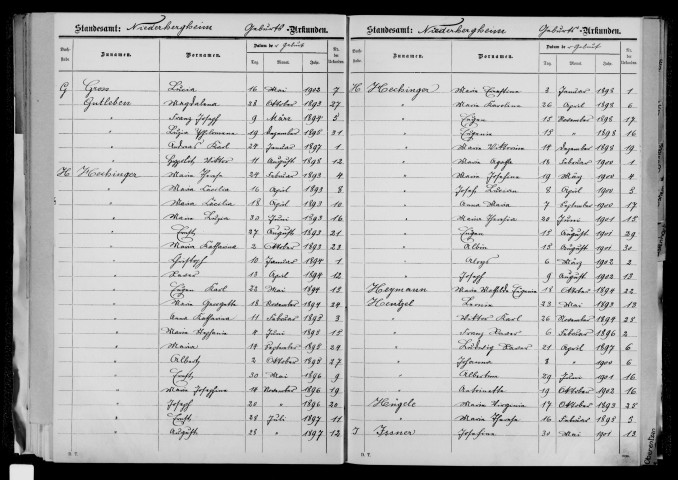 Standesamt: Niederbergheim Geburts-Urkunden.
Buchstabe Zunamen. Vornamen. Datum der Geburt Nr. der Urkunden
Tag. Monat. Jahr.
G Gross Lucia 16 Mai 1902 7
Gutleben Magdalena 28 Oktober 1893 27
" Franz Joseph 9 März 1894 5
" Luzia Philomena 19 Dezember 1895 31
" Andreas Karl 24 Januar 1897 1
" Hypolit Viktor 11 August 1898 12
H Hechinger Maria 24 Februar 1893 4
" Maria Cäcilia 16 April 1893 8
" Maria Cäcilia 18 April 1893 10
" Maria Luzia 30 Juni 1893 16
" 27 August 1893 21
" Maria Katharina 2 Oktober 1893 23
" 10 Januar 1894 1
" Xaver 13 April 1894 12
" Eugen Karl 22 Mai 1894 15
" Maria 18 November 1894 24
" Anna Katharina 11 Februar 1895 3
" Maria Stephania 4 Juni 1895 15
" Maria 14 September 1895 24
" Albert 2 Oktober 1895 27
" 30 Mai 1896 9
" Maria Josephina 18 November 1896 19
" Joseph 20 " 1896 20
" 28 Juli 1897 11
" August 28 " 1897 12
D. T.
Standesamt: Niederbergheim Geburts-Urkunden.
Buchstabe Zunamen. Vornamen. Datum der Geburt Nr. der Urkunden
Tag. Monat. Jahr.
H Hechinger Maria 3 Januar 1898 1
" Maria Karolina 26 April 1898 6
" Eugen 15 November 1898 17
" Eugenia 15 " 1898 16
" Maria Viktorina 14 Dezember 1898 19
" Maria Agatha 18 Februar 1900 1
" Maria Josephina 19 März 1900 4
" Joseph Lucian 8 April 1900 5
" Anna Maria 7 September 1900 17
" Maria 20 Juni 1901 15
" Eugen 15 August 1901 29
" Albin 15 August 1901 30
" Aloys 6 März 1902 2
" Joseph 9 August 1902 13
Heymann Maria Mathilde Eugenia 18 Oktober 1894 22
Hentzel 23 Mai 1893 13
" Viktor Karl 26 November 1894 25
" Franz Xaver 6 Februar 1896 2
" Ludwig Xaver 21 April 1897 6
" Johanna 1900 6
" Albertine 29 Juni 1901 16
" Antoinette 19 Oktober 1902 16
Hügele Maria Virginia 17 Oktober 1893 25
" Maria 16 Februar 1895 5
I Isner Josephina 30 Mai 1901 13
D. T.